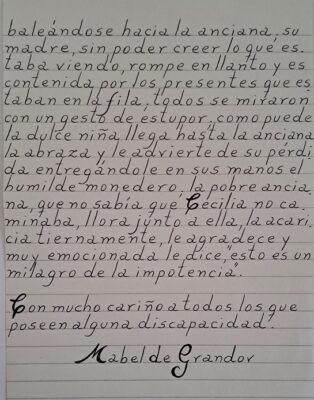 baleándose hacia la anciana, su
madre, sin poder creer lo que es.
taba viendo, rompe en llanto y es
contenida por los presentes que es
taban en la fila, todos se miraron
con un gesto de estupor, como puede
la dulce niña llega hasta la anciana
la abraza y le advierte de su pérdi
da entregándole en sus manos el
humilde monedero, la pobre ancia.
na, que no sabía que Cecilia no ca.
minaba, llora junto a ella, la acari.
cia tiernamente, le agradece y
muy emocionada le dice, "esto es un
milagro de la impotencia".
Con mucho cariño a todos los que
poseen alguna discapacidad.
Mabel de Grandov